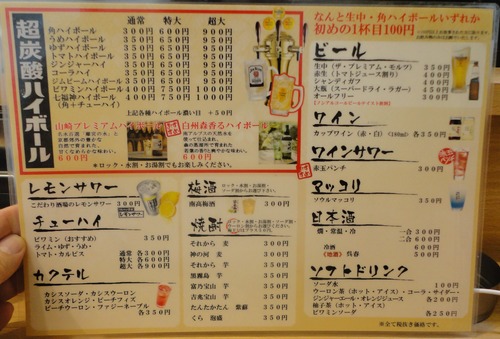 超炭酸ハイボール
通常 特大 超大
角ハイボール 300円 600円 900円
うめハイボール 350円 650円 950円
ゆずハイボール 350円 650円 950円
トマトハイボール 350円 650円 950円
ジンジャーハイ 350円 650円 950円
コーラハイ 350円 650円 950円
ジムビームハイボール 350円 650円 950円
ビワミンハイボール 350円 650円 950円
七福神ハイボール 350円 650円 950円
(角+チューハイ)
上記各種ハイボール濃い目 +50円
山崎プレミアムハイボール
600円
白州森香るハイボール
600円
*ロック・水割・お湯割でもお楽しみください。
なんと生中・角ハイボールいずれか
初めの1杯目100円
ビール
生中(ザ・プレミアム・モルツ) 350円
赤生(トマトジュース割り) 400円
シャンディガフ 400円
大瓶(スーパードライ・ラガー) 450円
オールフリー 300円
ワイン
カップワイン(赤・白)(180ml) 各350円
ワインサワー
赤玉パンチ 350円
マッコリ
ソウルマッコリ 350円
日本酒
燗・常温・冷 一合 300円
二合 600円
冷酒 600円
(地酒) 呉春 500円
ソフトドリンク
ソーダ水 100円
ウーロン茶(ホット・アイス)・コーラ・サイダー・
ジンジャーエール・オレンジジュース 各200円
柚子茶(ホット・アイス) 各200円
ビワミンソーダ 各250円
※全て税抜き価格です。
レモンサワー
こだわり酒場のレモンサワー 300円
チューハイ
ビワミン(おすすめ) 350円
ライム・ゆず・うめ・
トマト・カルピス 通常 各300円
特大 各600円
超大 各900円
カクテル
カシスソーダ・カシスウーロン
カシスオレンジ・ピーチフィズ
ピーチウーロン・ファジーネーブル
各350円
梅酒
南高梅酒 300円
焼酎
それから 麦 300円
神の河 麦 300円
それから 芋 350円
黒霧島 芋 350円
富乃宝山 芋 350円
吉兆宝山 芋 350円
たんたかたん 紫蘇 350円
くら 泡盛 350円